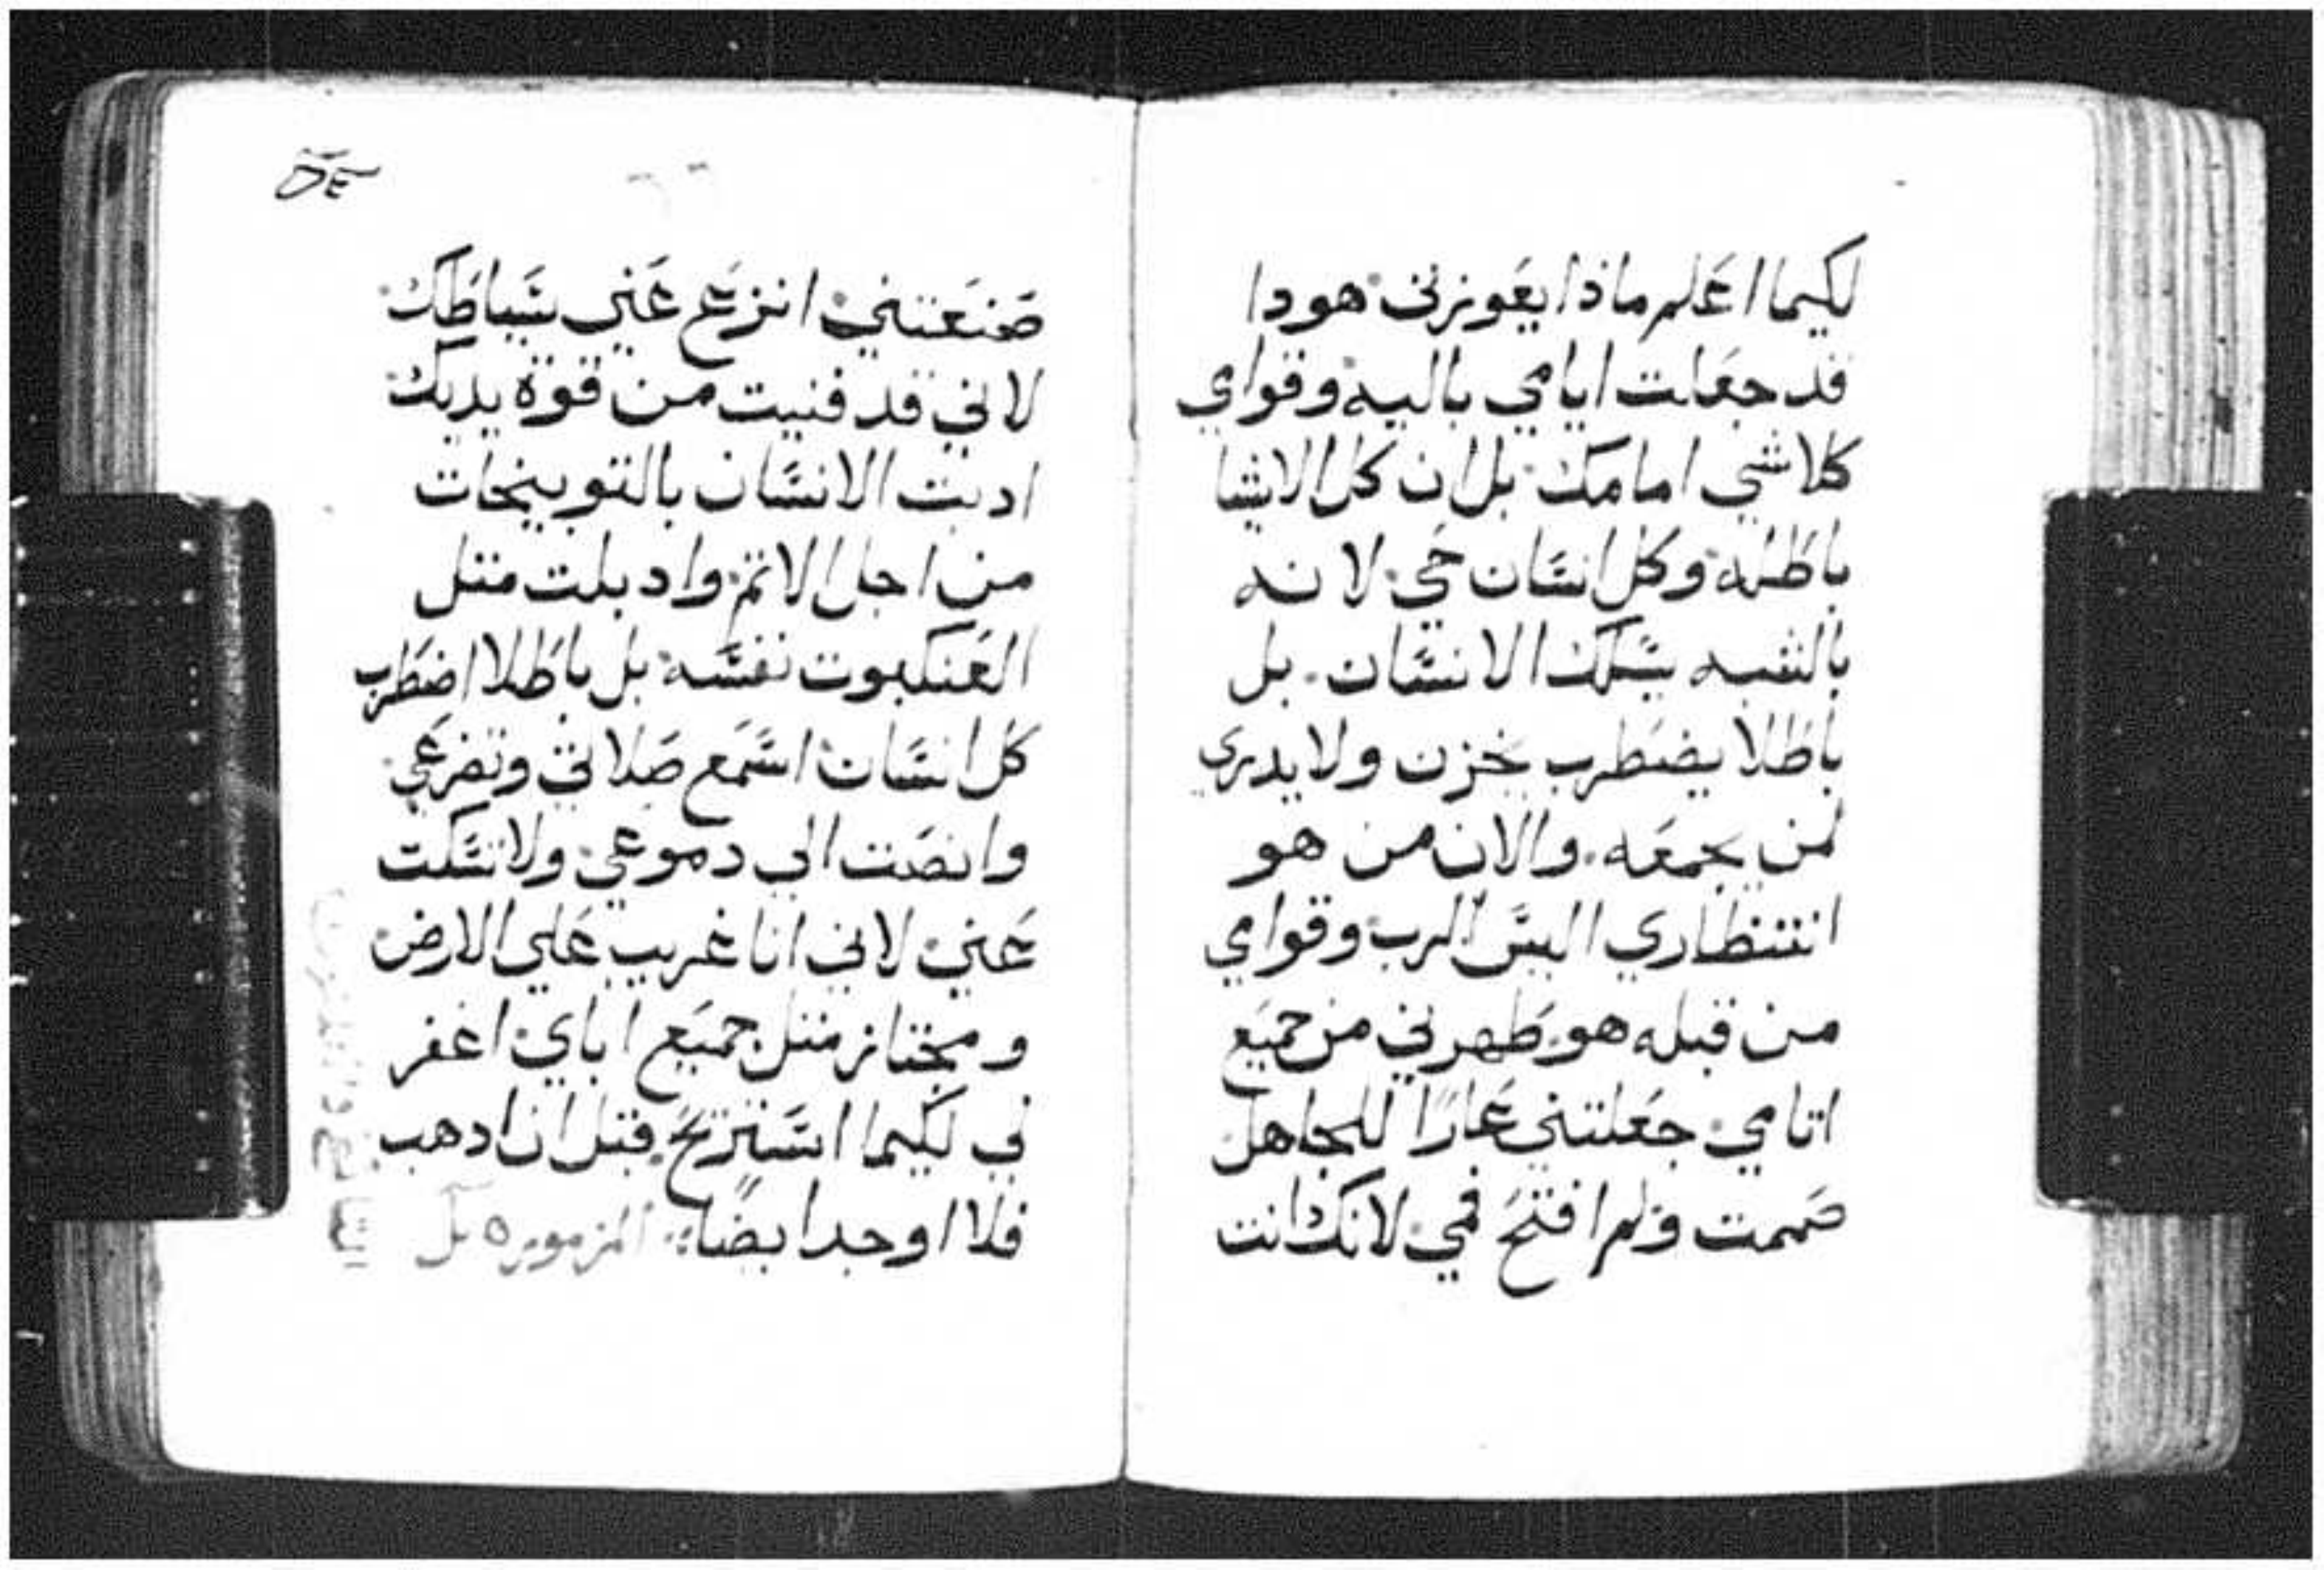 لكيما اعلم ماذا يعوزني هودا
قد جعلت ايامي باليه وقواي
كلاشي امامك بل ان كل الاشيا
باطله وكل انسان حي لانه
بالشبه يسلك الانسان. بل
باطلا يضطرب يخزن ولا يدري
لمن يجمعه. والان من هو
انتظاري اليس الرب وقواي
من قبله هو طهرني من جميع
اتامي جعلتني عارًا للجاهل
صممت ولم افتح فمي لانك انت
صنعتني انزع عني سياطك
لاني قد فنيت من قوة يديك
ادبت الانسان بالتوبيخات
من اجل الاتم وادبلت متل
العنكبوت نفسه بل باطلا اضطرب
كل انسان اسمع صلاتي وتضرعي
وانصت الي دموعي ولا تسكت
عني لاني انا غريب علي الارض
ومجتاز متل جميع اباي اغفر
لي لكيما استريح قبل ان ادهب
فلا اوجد ايضًا المزمور